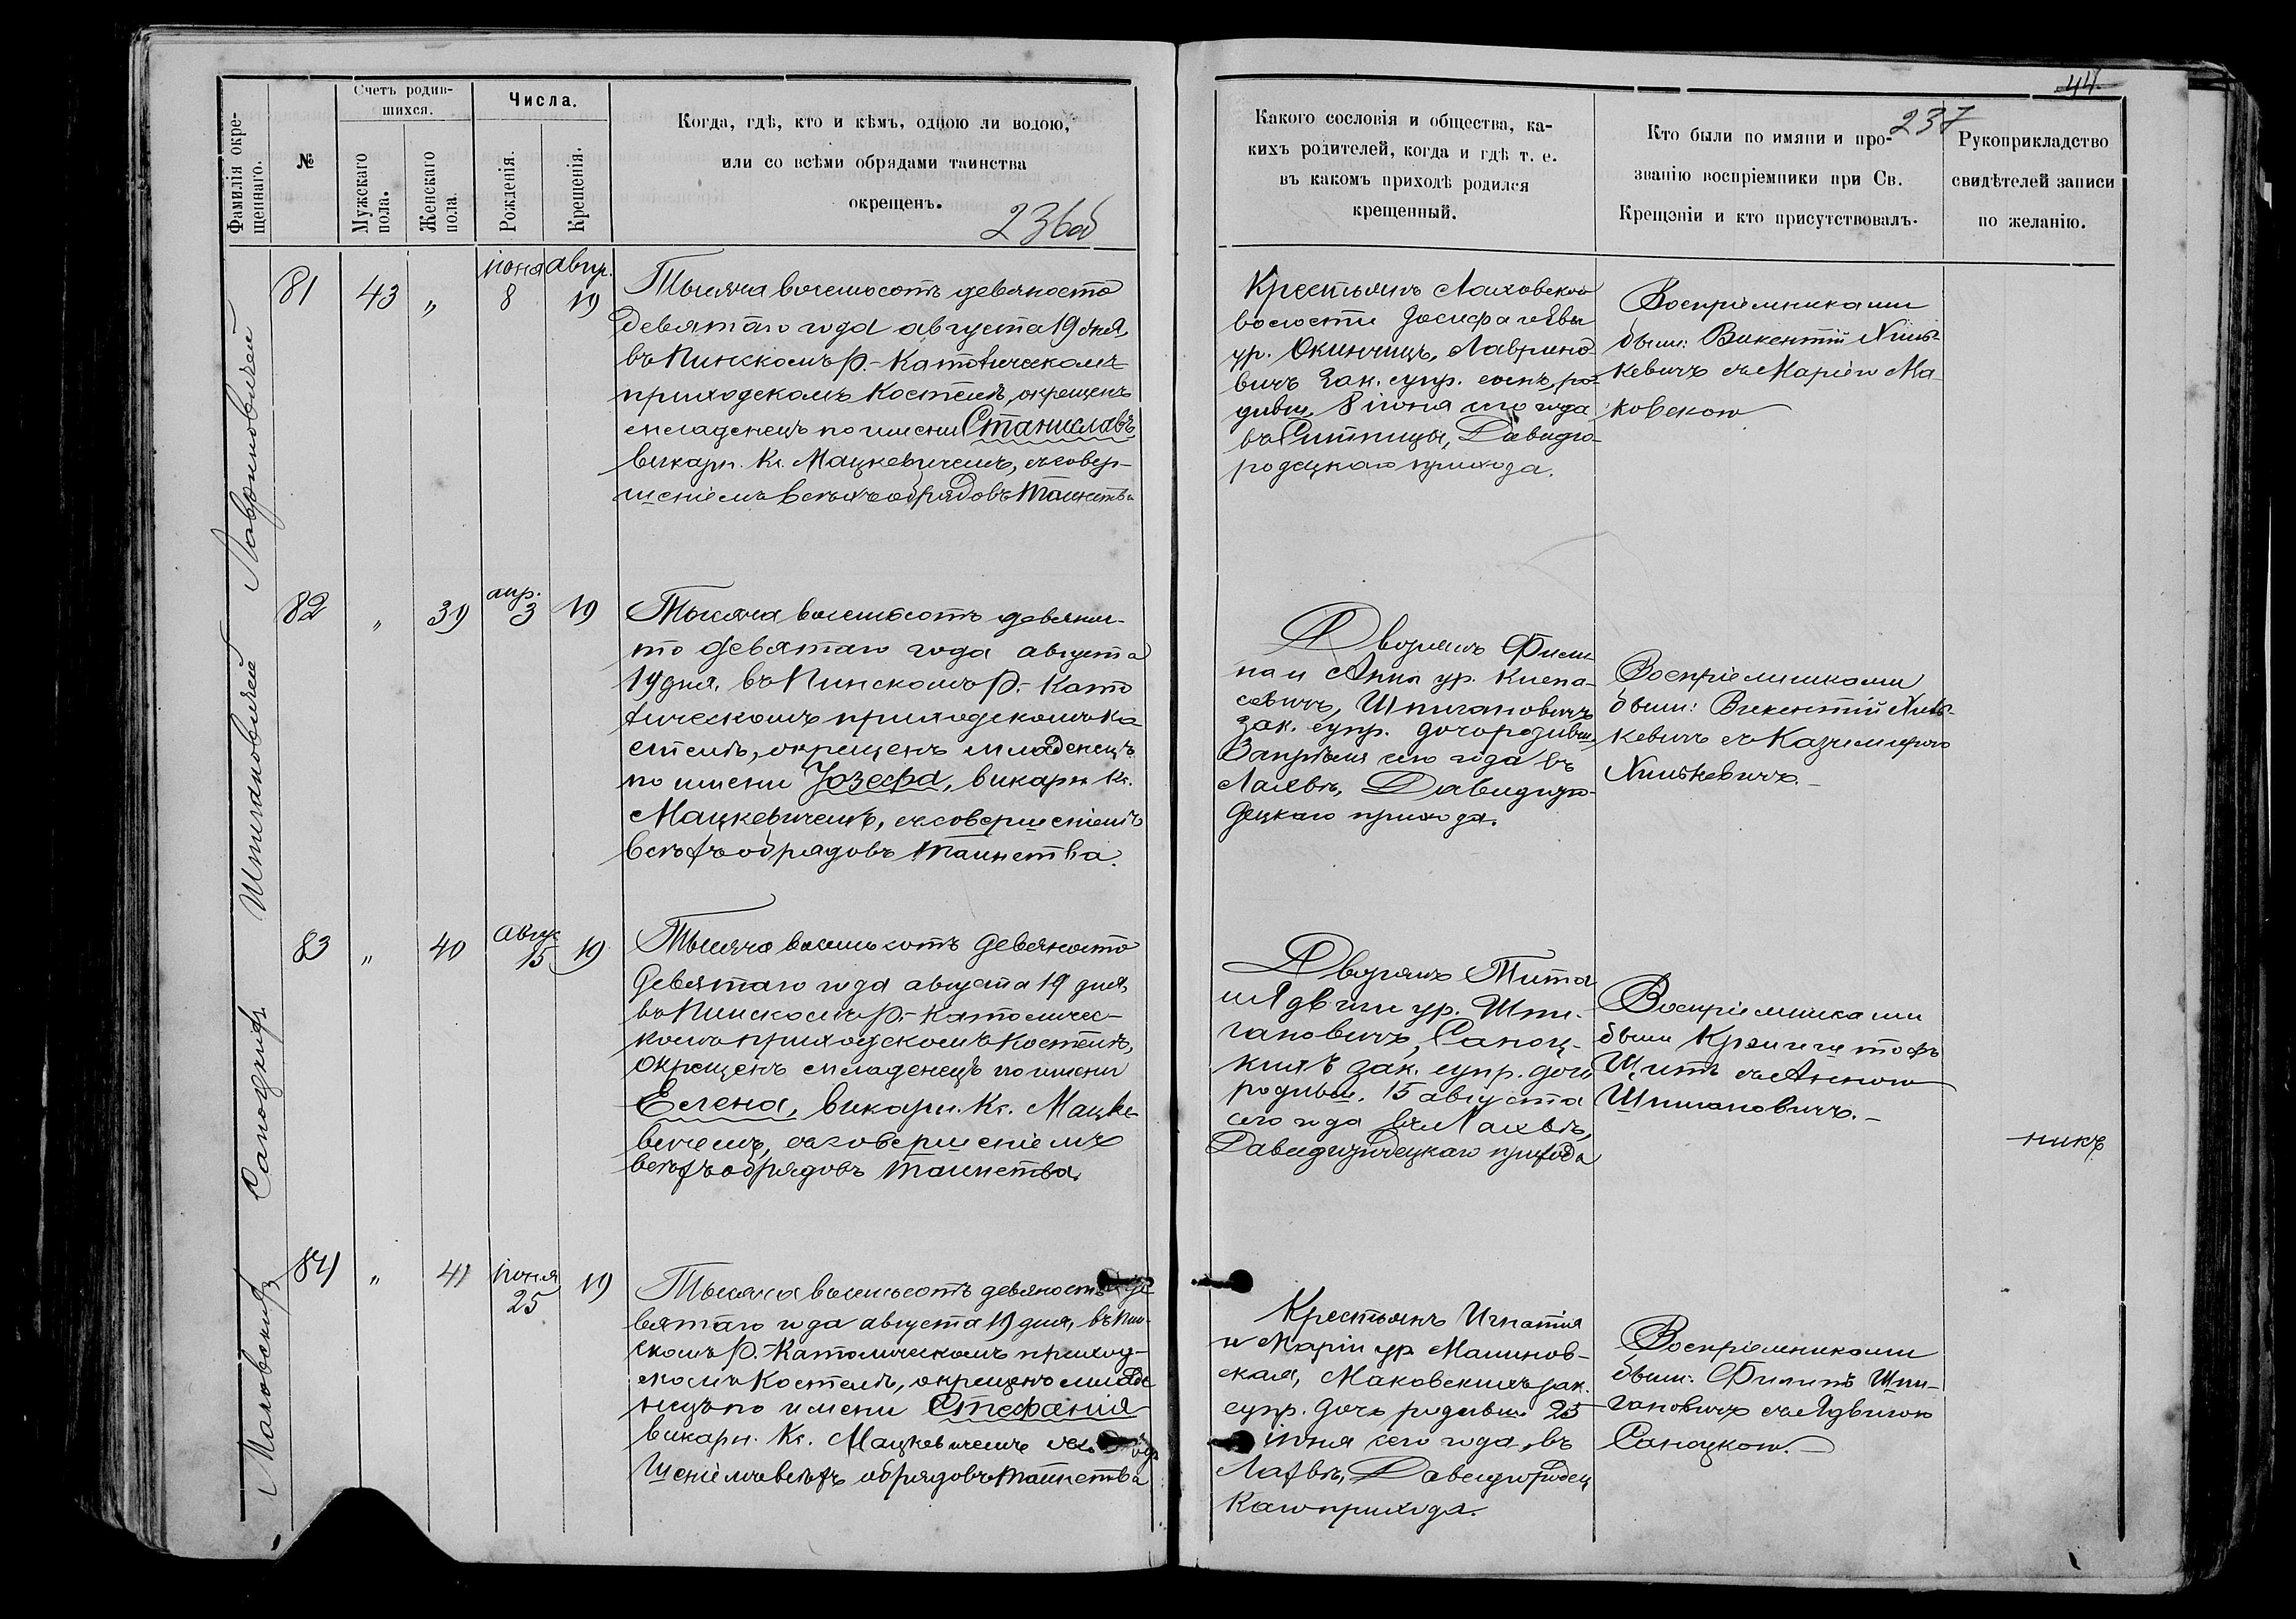 Фамилія окре-
щеннаго.
№
Счетъ родив-
шихся.
Мужскаго
пола.
Женскаго
пола.
Числа.
Рожденія.
Крещенія.
Когда, гдѣ, кто и кѣмъ, одною ли водою,
или со всѣми обрядами таинства
окрещенъ.
236об
Лавриновичей
81
43
"
іюня
8
авгр.
19
Тысяча восемьсотъ девяносто
девятаго года августа 19 дня,
въ Пинскомъ Р.-Католическомъ
приходскомъ костелѣ, окрещенъ
младенецъ по имени Станиславъ
викарн. Кс. Мацкевичемъ, съ совер-
шеніемъ всѣхъ обрядовъ таинства
Шпигановичей
82
"
39
апр.
3
19
Тысяча восемьсотъ девянос-
то девятаго года августа
19 дня, въ Пинскомъ Р.-Като
лическомъ приходскомъ ко-
стелѣ, окрещенъ младенецъ
по имени Іозефа, викарн Кс.
Мацкевичемъ, съ совершеніемъ
всѣхъ обрядовъ таинства.
Саноцкихъ
83
"
40
авгус
15
19
Тысяча восемьсотъ девяносто
девятаго года августа 19 дня,
въ Пинскомъ Р.-Католичес-
комъ приходскомъ костелѣ,
окрещенъ младенецъ по имени
Елена, викарн. Кс. Мацке-
вичемъ, съ совершеніемъ
всѣхъ обрядовъ таинства.
Маковскихъ
84
"
41
іюня
25
19
Тысяча восемьсотъ девяносто де
вятаго года августа 19 дня, въ Пин-
скомъ Р.-Католическомъ приход-
скомъ костелѣ, окрещенъ младе
нецъ по имени Стефанія
викарн. Кс. Мацкевичемъ
шеніемъ всѣхъ обрядовъ таинства
44
237
Какого сословія и общества, ка-
кихъ родителей, когда и гдѣ т. е.
въ какомъ приходѣ родился
крещенный.
Кто были по имяни и про-
званію воспріемники при Св.
Крещэніи и кто присутствовалъ.
Рукоприкладство
свидѣтелей записи
по желанію.
Крестьянъ Лаховской
волости Іосифа и Евы
ур. Окинчицъ, Лаврино-
вичъ зак. супр. сынъ, ро-
дивш. 8 іюня сего года
въ Ситницы, Давидго-
родецкаго прихода.
Воспріемниками
были: Викентій Хиль-
кевичъ съ Маріею Ма-
ковскою
Дворянъ Фили
па и Анны ур.
Шпигановичъ
зак. супр. дочь родивш.
3 апрѣля сего года въ
Лахвѣ, Давидгоро-
децкаго прихода.
Воспріемниками
были: Викентій Хиль-
кевичъ съ Казимирою
Хилькевичъ.-
Дворянъ Тита
и Ядвиги ур. Шпи-
гановичъ, Саноц-
кихъ зак. супр. дочь
родивш. 15 августа
сего года въ Лахвѣ,
Давидгородецкаго прихода
Воспріемниками
были
Щитъ съ Анною
Шпигановичъ.-
никъ
Крестьянъ Игнатія
и Маріи ур. Малинов-
ская, Маковскихъ зак.
супр. дочь родивш. 25
іюня сего года, въ
Лахвѣ, Давидгородец
каго прихода.
Воспріемниками
были: Филипъ Шпи-
гановичъ съ Ядвигою
Саноцкою.-